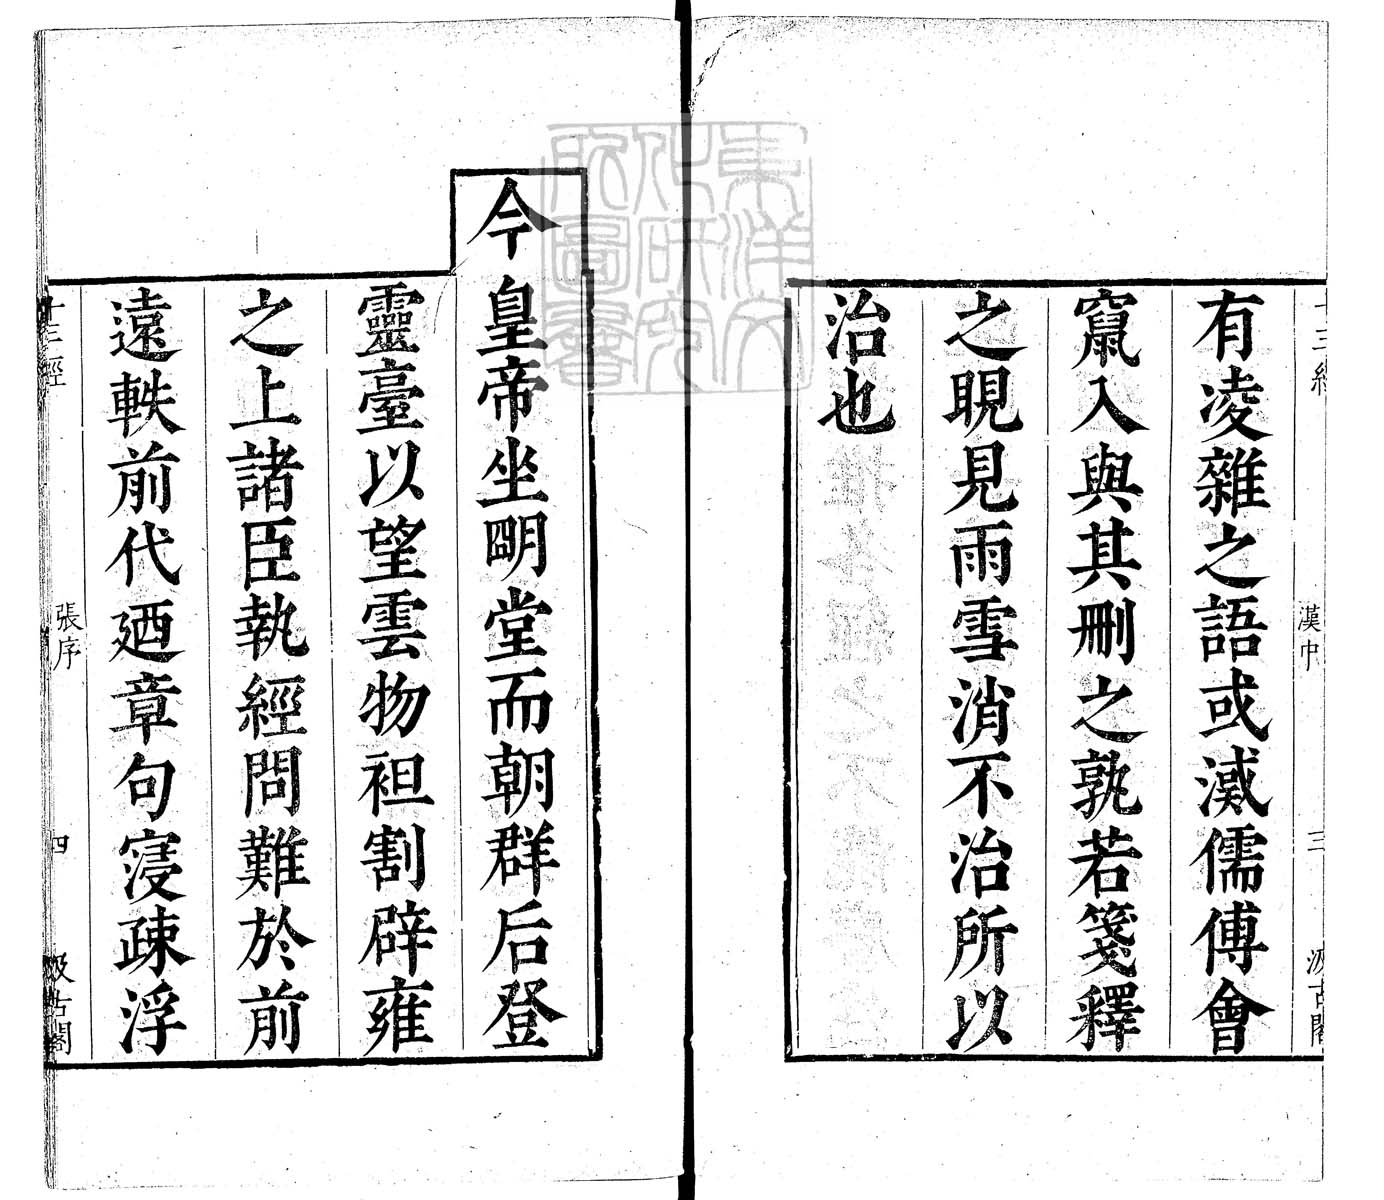 十三經
漢中
三
汲古閣
有凌雜之語或滅儒傅會
竄入與其刪之孰若箋釋
之晛見雨雪消不治所以
治也
今皇帝坐朙堂而朝群后登
靈臺以望雲物袒割辟雍
之上諸臣執經問難於前
遠軼前代廼章句寖疎浮
十三經
張序
四
汲古閣
東洋文
化研究
所圖書